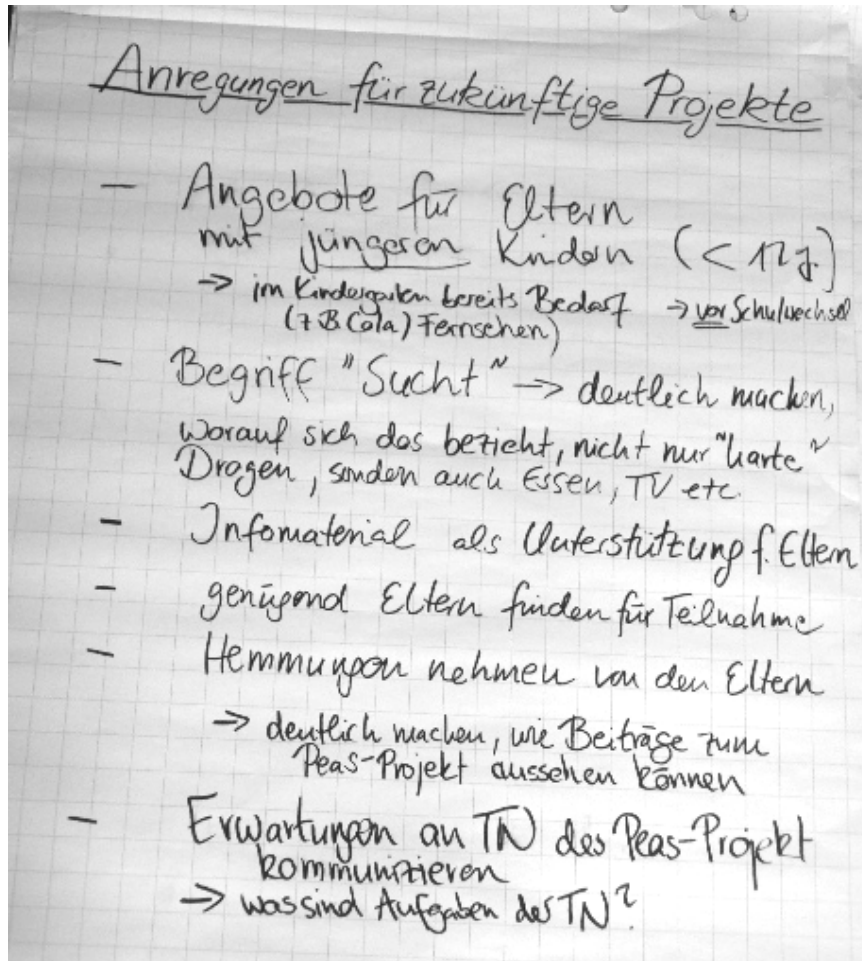 Anregungen für zukünftige Projekte
- Angebote für Eltern
mit jüngeren Kindern (< 12 J.)
→ im Kindergarten bereits Bedarf → vor Schulwechsel
(z B Cola) Fernsehen)
- Begriff "Sucht" → deutlich machen,
worauf sich das bezieht, nicht nur "harte"
Drogen, sondern auch Essen, TV etc.
- Infomaterial als Unterstützung f. Eltern
- genügend Eltern finden für Teilnahme
- Hemmungen nehmen von den Eltern
→ deutlich machen, wie Beiträge zum
Peas-Projekt aussehen können
- Erwartungen an TN des Peas-Projekt
kommunizieren
→ was sind Aufgaben der TN?